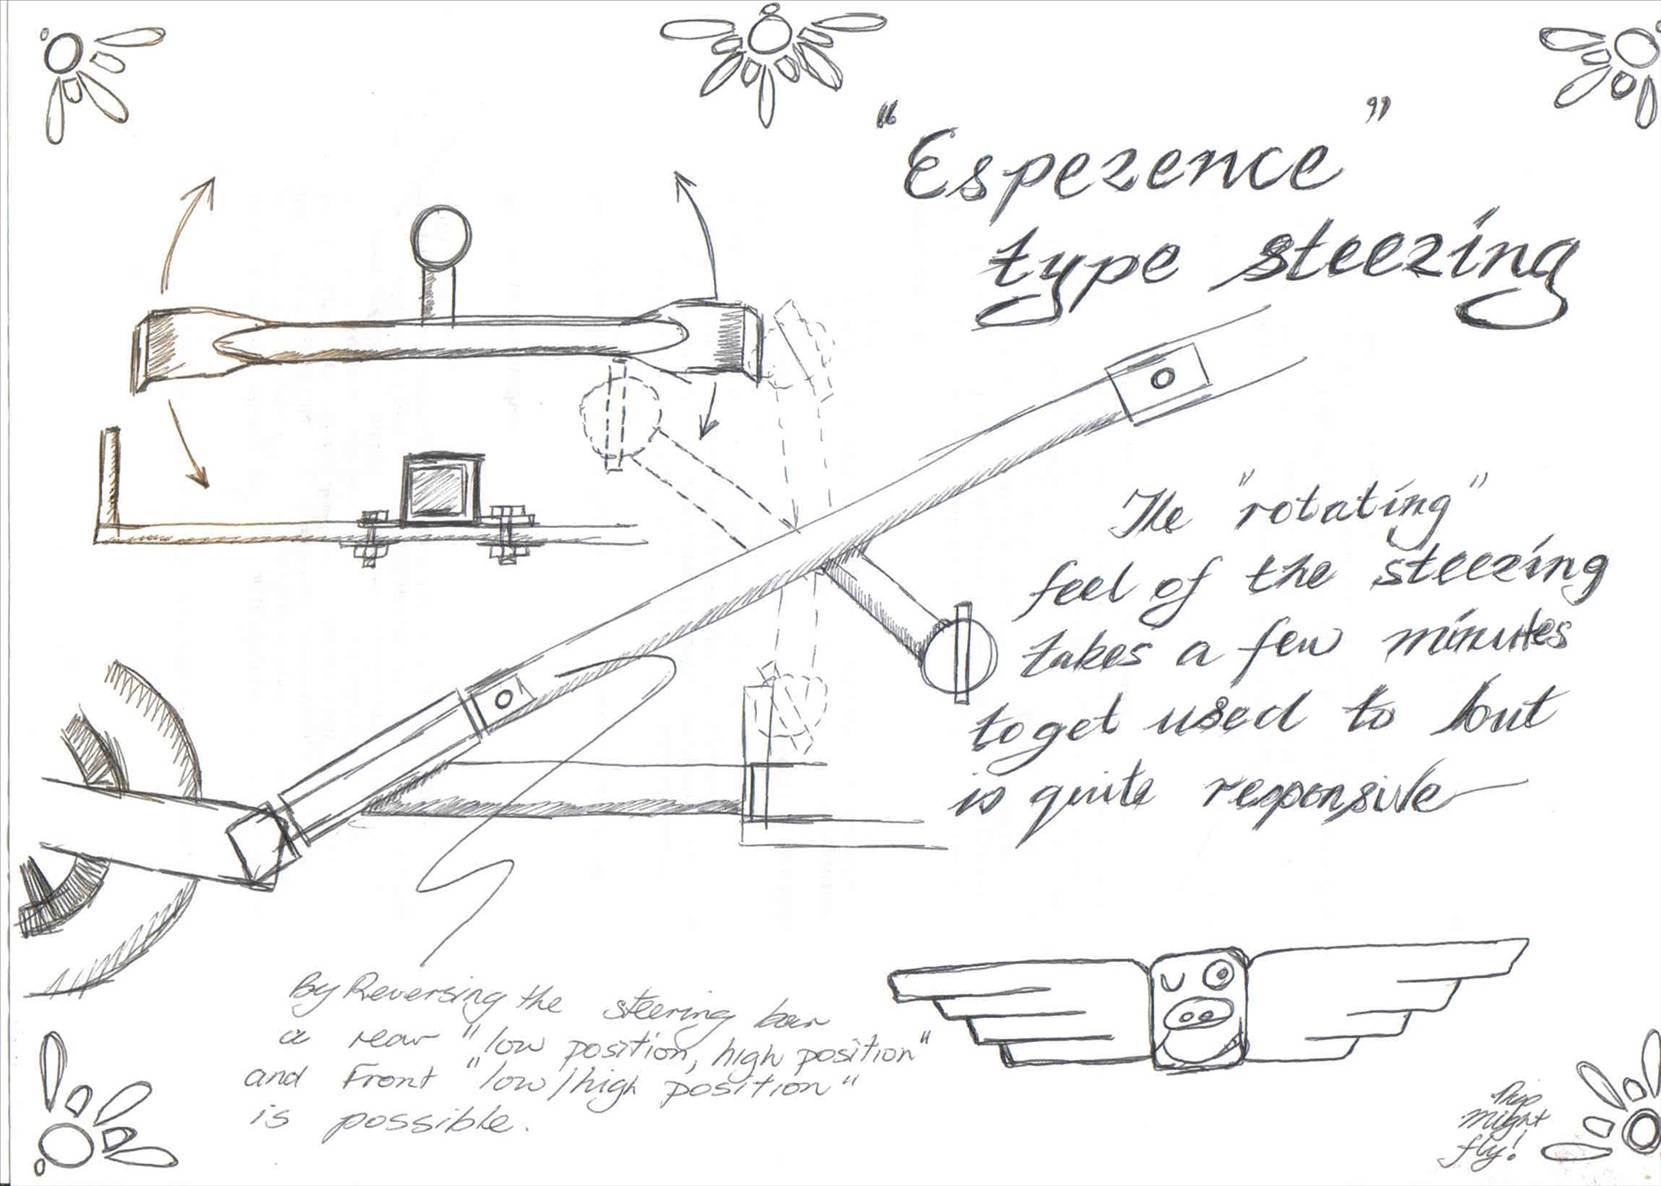 "Esperence"
type steering
The "rotating"
feel of the steering
takes a few minutes
to get used to but
is quite responsive
By Reversing the steering bar
a rear "low position, high position"
and Front "low/high position"
is possible.
Pigs
Might
fly!